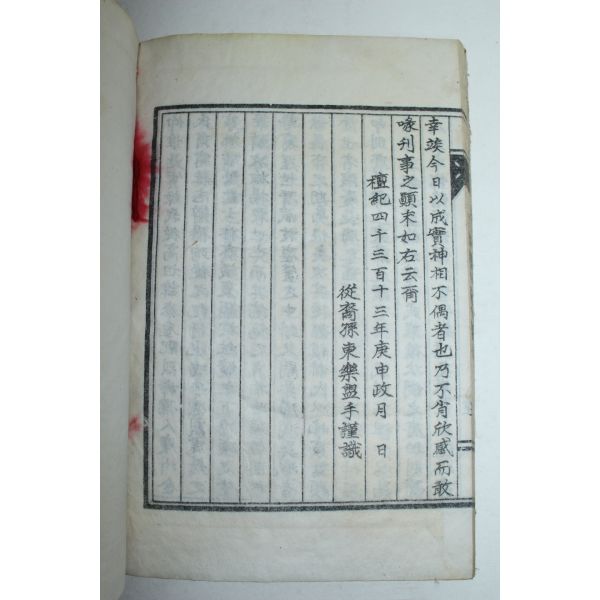 幸竢今日以成實神相不偶者也乃不肖欣感而敢
喙刊事之顚末如右云爾
檀紀四千三百十三年庚申政月 日
從裔孫東樂盥手謹識